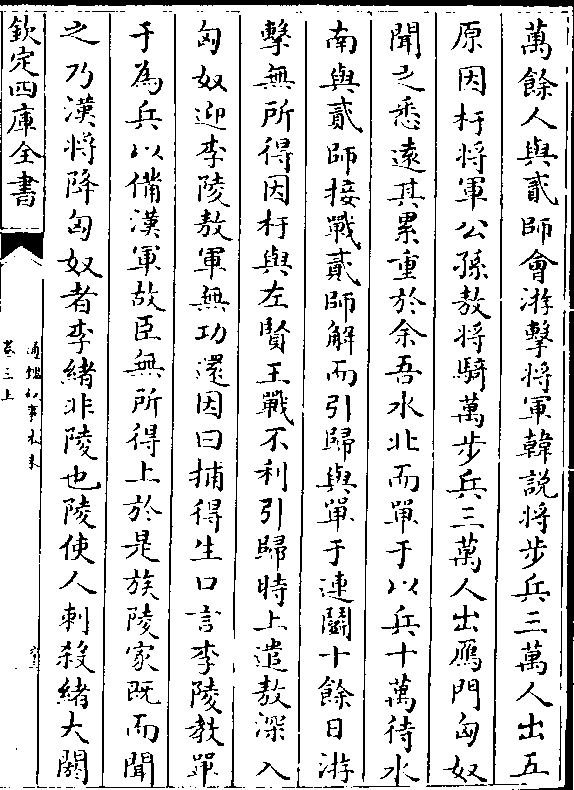 萬餘人與貳師會游擊將軍韓説將步兵三萬人出五
原因杅將軍公孫敖將騎萬步兵三萬人出鴈門匈奴
聞之悉逺其累重於余吾水北而單于以兵十萬待水
南與貳師接戰貳師解而引歸與單于連鬭十餘日游
擊無所得因杅與左賢王戰不利引歸時上遣敖深入
匈奴迎李陵敖軍無功還因曰捕得生口言李陵教單
于為兵以備漢軍故臣無所得上於是族陵家既而聞
之乃漢將降匈奴者李緒非陵也陵使人刺殺緒大閼
欽定四庫全書
通鑑紀事本末
卷三上